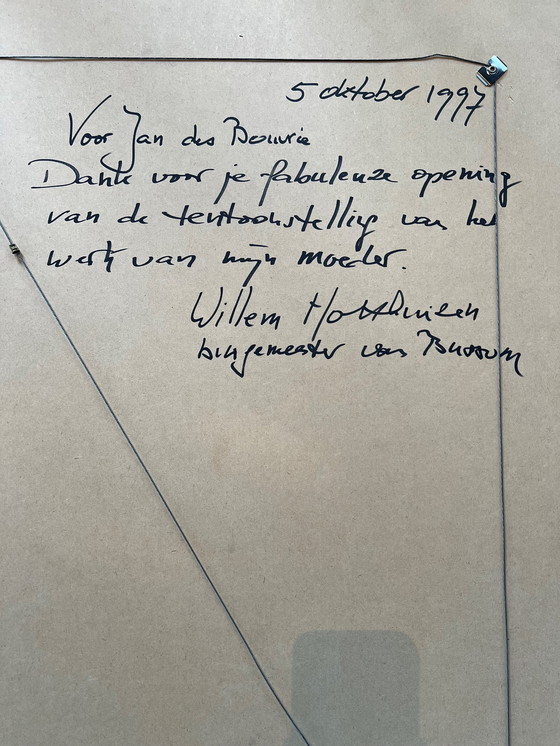 5 oktober 1997
Voor Jan des Bouvrie
Dank voor je fabuleuze opening
van de tentoonstelling van het
werk van mijn moeder.
Willem Holthuizen
burgemeester van Bussum